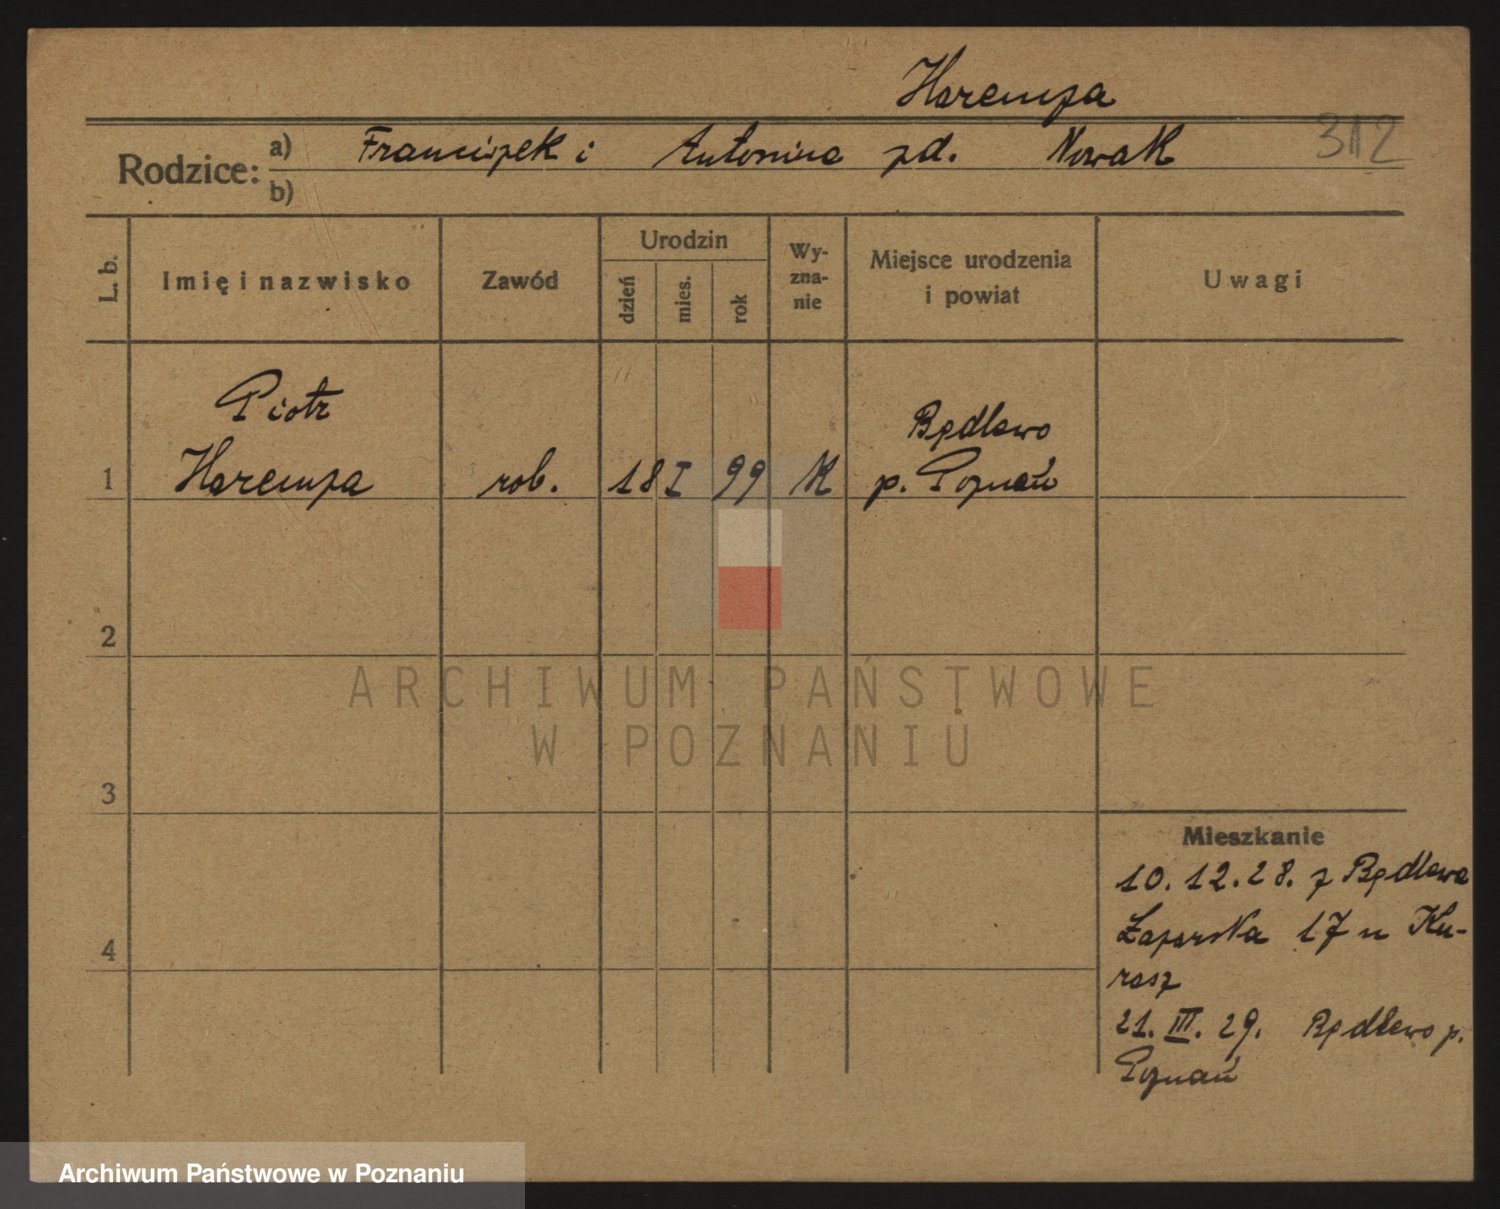 Harempa
312
Rodzice: a) Franciszek i Antonina zd. Nowak
b)
L. b. Imię i nazwisko Zawód Urodzin dzień mies. rok Wy-zna-nie Miejsce urodzenia i powiat Uwagi
Piotr Będlewo
1 Harempa rob. 18 I 99 K p. Poznań
2
3
4
Mieszkanie
10.12.28. z Będlewa
Łazarska 17 u Ku-
rasz
21. III. 29. Będlewo p.
Poznań
ARCHIWUM PAŃSTWOWE
W POZNANIU
Archiwum Państwowe w Poznaniu